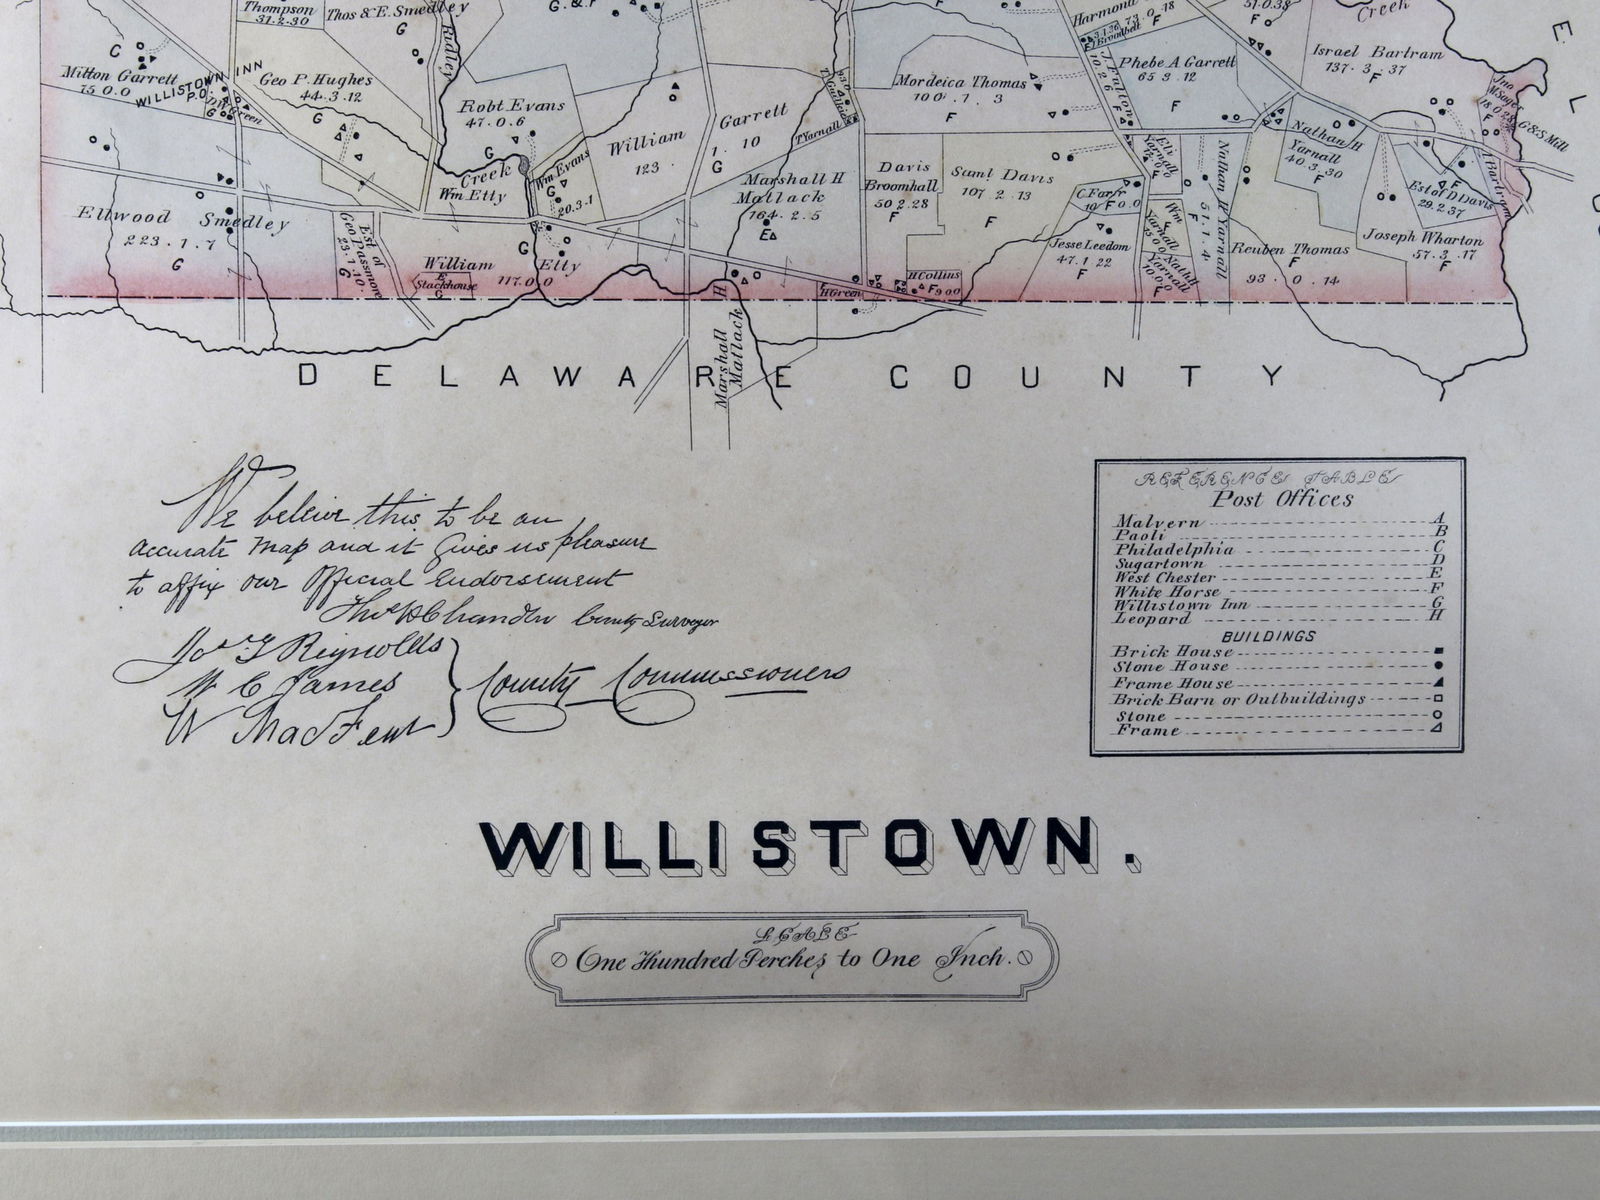 Thompson
31.2.30
Thos & E. Smedley
Ridley
G
G. & F
F
Harmond
73.0.18
F
51.0.38
F
Creek
E L
C
Milton Garrett
75 0.0
WILLISTOWN INN
P.O.
G
Geo P. Hughes
44.3.12
G
Robt Evans
47.0.6
G
Creek
Wm Etty
Wm Evans
G
20.3.1
William Garrett
123 . 1. 10
G
T Yarnall
Mordeica Thomas
100.1.3
F
Phebe A Garrett
65 3.12
F
J. Fulton
10.2.6
F
Israel Bartram
137.3.37
F
G & S Mill
Ellwood Smedley
223.1.7
G
Est of
Geo Passmore
23.1.10.
G
William Etty
117.0.0
G
E
Stackhouse
G
Marshall H
Matlack
164.2.5
E
Davis
Broomhall
50 2.28
F
Saml Davis
107 2.13
F
C. Farr
10 F 0.0
Jesse Leedom
47.1 22
F
Eli
Yarnall
F
Nathan H Yarnall
51.1.4
F
Nathan H
Yarnall
40.3.30
F
Est of D Davis
29.2.37
F
A Bartram
Reuben Thomas
F
93.0.14
Joseph Wharton
57.3.17
F
H Green
H Collins
F 9 0 0
H
Marshall
Matlack
DELAWARE COUNTY
We believe this to be an
accurate map and it Gives us pleasure
to affix our Official Endorsement
Thos H Chandler County Surveyor
Jos. T Reynolds
W C James
W MacFeat
County Commissioners
REFERENCE TABLE
Post Offices
Malvern A
Paoli B
Philadelphia C
Sugartown D
West Chester E
White Horse F
Willistown Inn G
Leopard H
BUILDINGS
Brick House
Stone House
Frame House
Brick Barn or Outbuildings
Stone
Frame
WILLISTOWN.
SCALE
One Hundred Perches to One Inch.